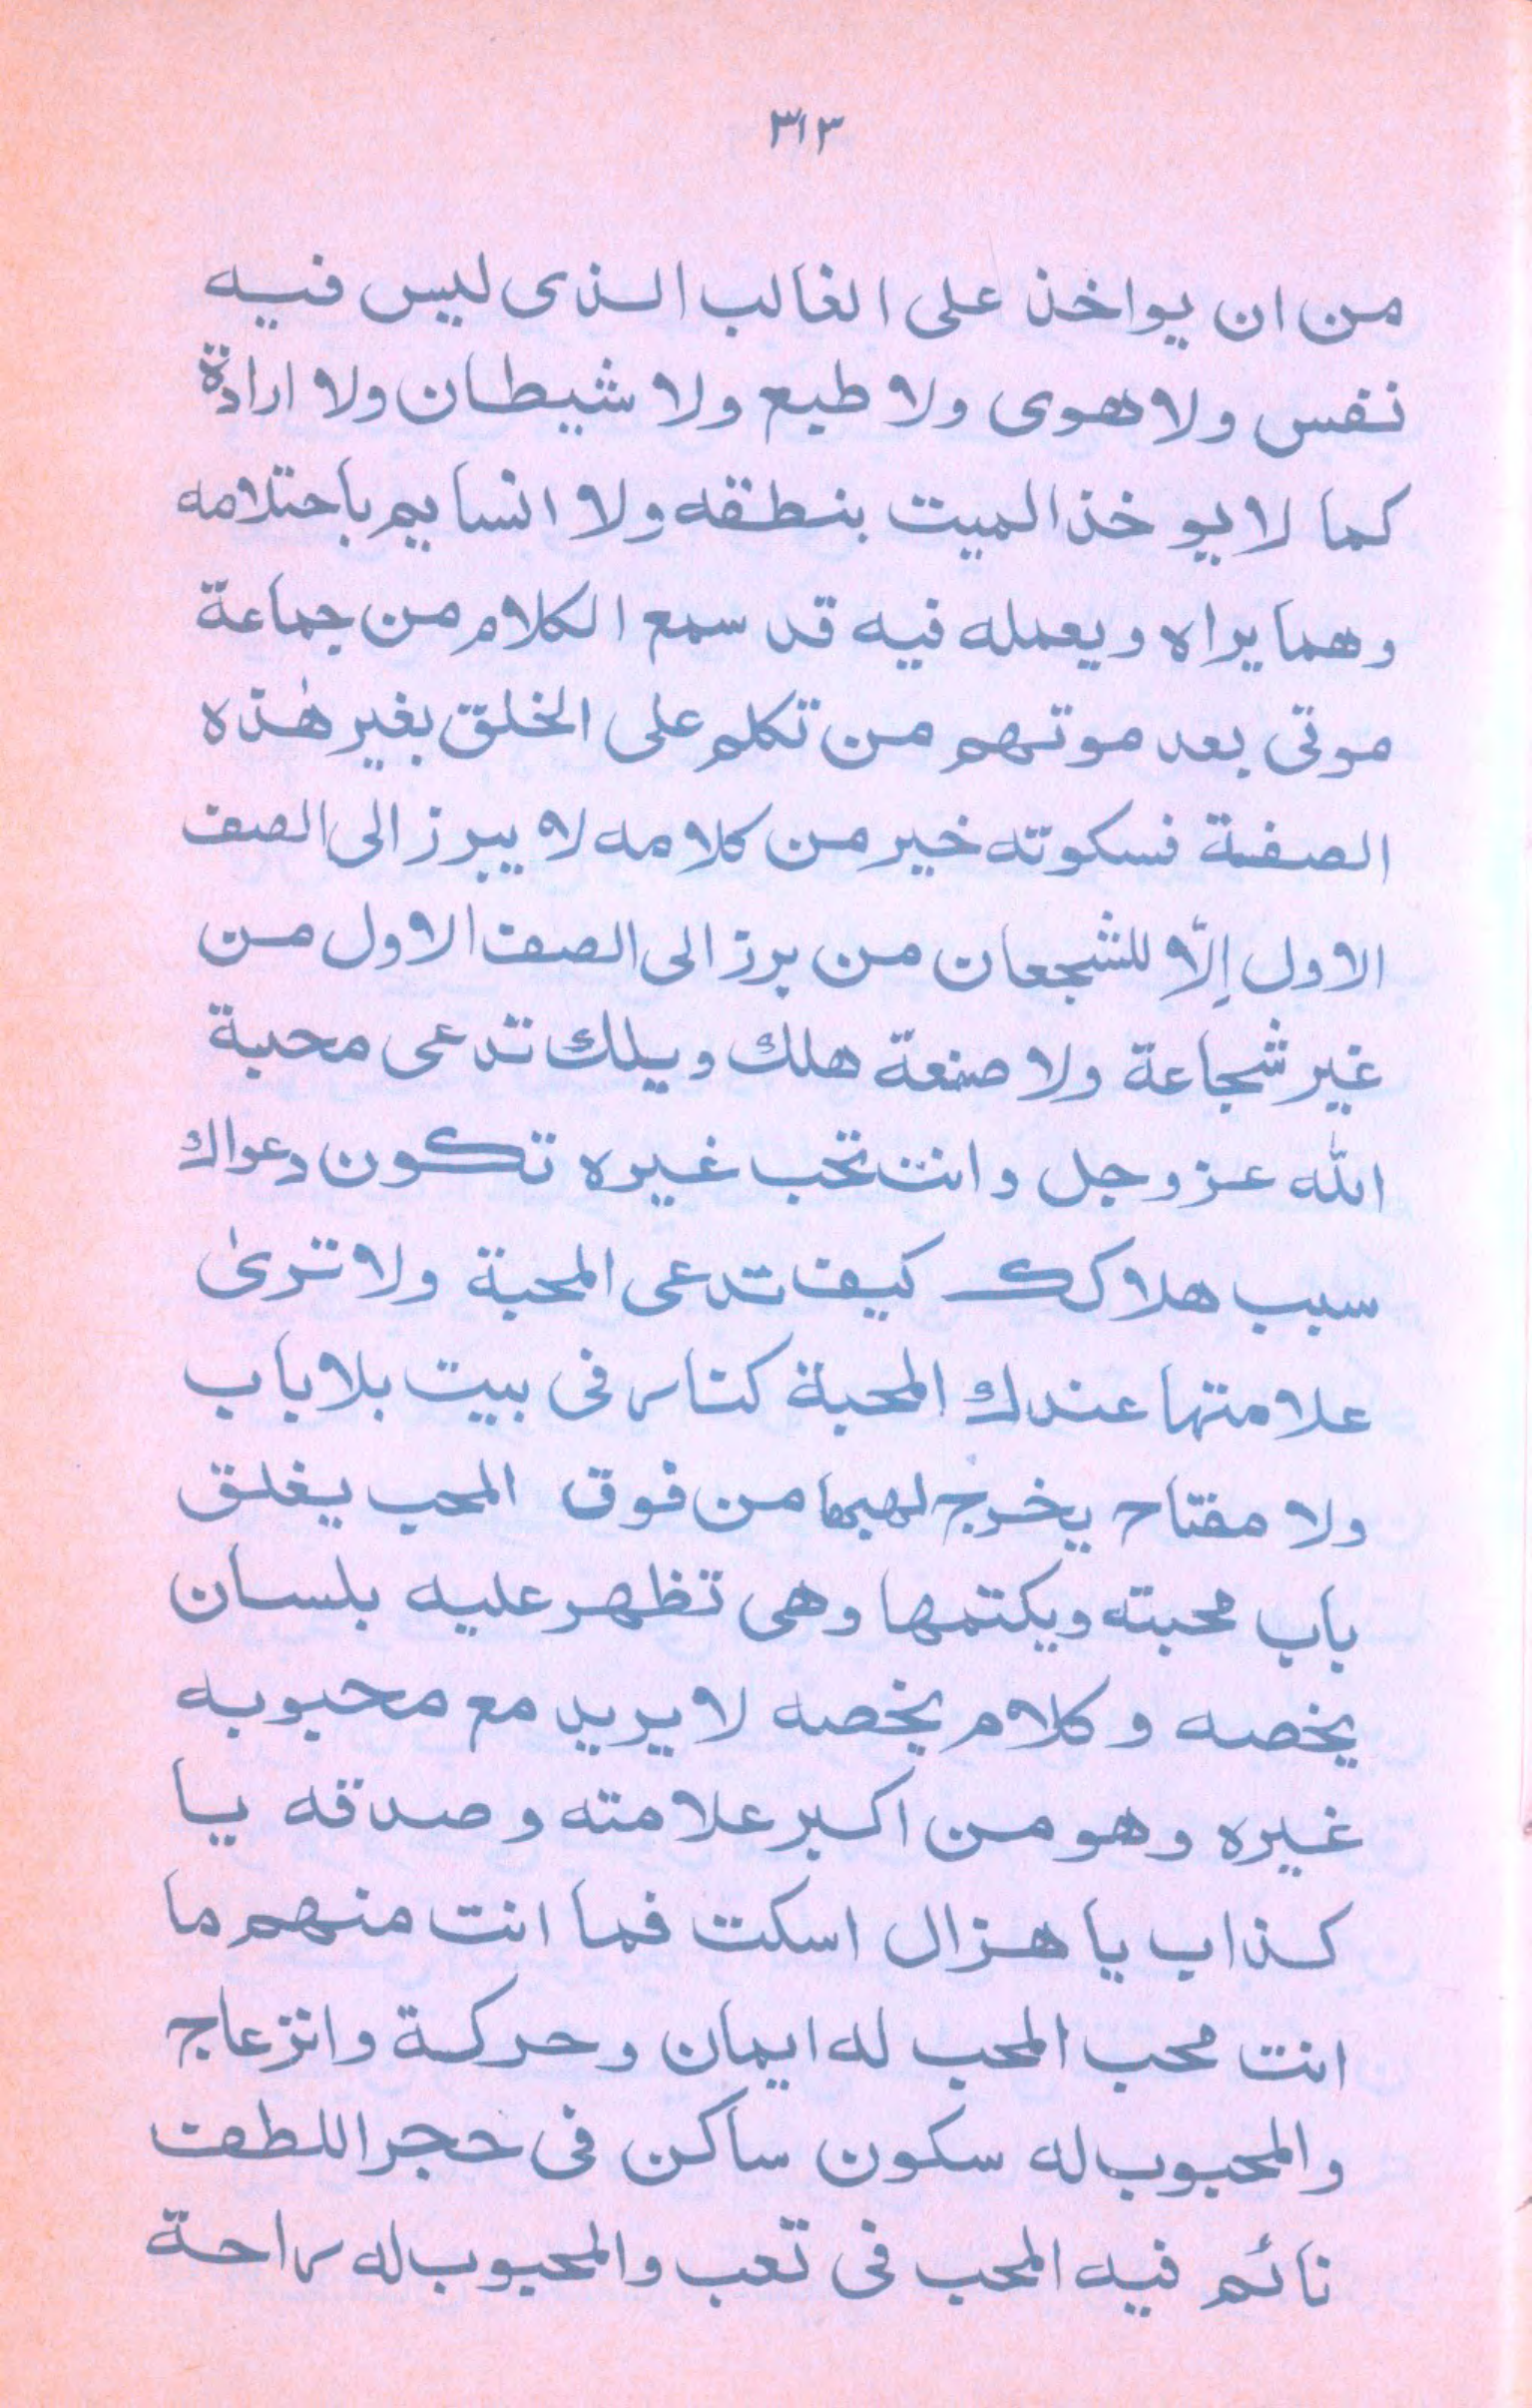 ٣١٣
من ان يواخذ على الغالب الذى ليس فيه
نفس ولا هوى ولا طبع ولا شيطان ولا ارادة
كما لا يو خذ الميت بنطقه ولا انسايم باحتلامه
وهما يراه ويعمله فيه قد سمع الكلام من جماعة
موتى بعد موتهم من تكلم على الخلق بغير هٰذه
الصفة فسكوته خير من كلامه لا يبرز الى الصف
الاول إلّا للشجعان من برز الى الصف الاول من
غير شجاعة ولا صنعة هلك ويلك تدعى محبة
الله عز وجل وانت تحب غيره تكون دعواك
سبب هلاكك كيف تدعى المحبة ولا ترىٰ
علامتها عندك المحبة كنار فى بيت بلا باب
ولا مفتاح يخرج لهبها من فوق المحب يغلق
باب محبته ويكتمها وهى تظهر عليه بلسان
يخصه وكلام يخصه لا يريد مع محبوبه
غيره وهو من اكبر علامته وصدقه يا
كذاب يا هزال اسكت فما انت منهم ما
انت محب المحب له ايمان وحركة وانزعاج
والمحبوب له سكون ساكن فى حجر اللطف
نائم فيه المحب فى تعب والمحبوب له راحة